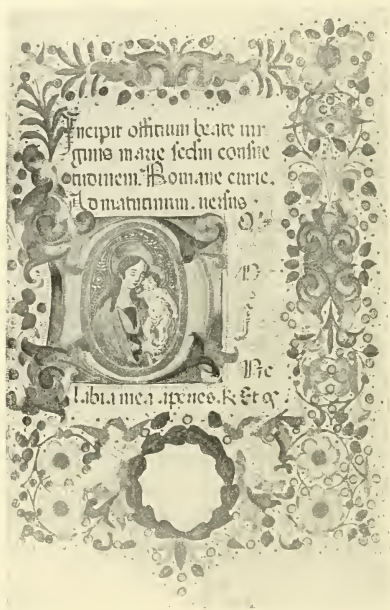 Incipit offitium beate uir
ginis marie scdm consue
tudinem. Romane curie.
Ad matutinum. uersus.
D
labia mea aperies. R. Et